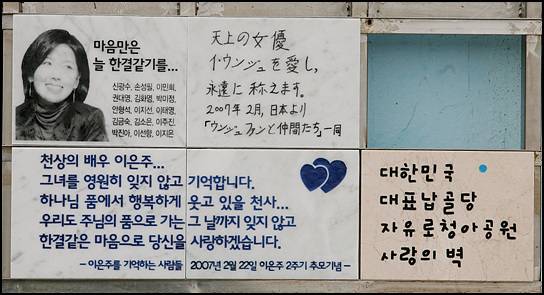 마음만은
늘 한결같기를...
신광수, 손성필, 이민희,
권대영, 김화영, 박미정,
안형석, 이지선, 이태영,
김금숙, 김소은, 이주진,
박진아, 이선항, 이지은
天上の女優
イ・ウンジュを愛し,
永遠に 称えます。
2007年 2月, 日本より
「ウンジュファンと仲間たち」一同
천상의 배우 이은주...
그녀를 영원히 잊지 않고 기억합니다.
하나님 품에서 행복하게 웃고 있을 천사...
우리도 주님의 품으로 가는 그 날까지 잊지 않고
한결같은 마음으로 당신을 사랑하겠습니다.
– 이은주를 기억하는 사람들 2007년 2월 22일 이은주 2주기 추모기념 –
대한민국
대표납골당
자유로청아공원
사랑의 벽